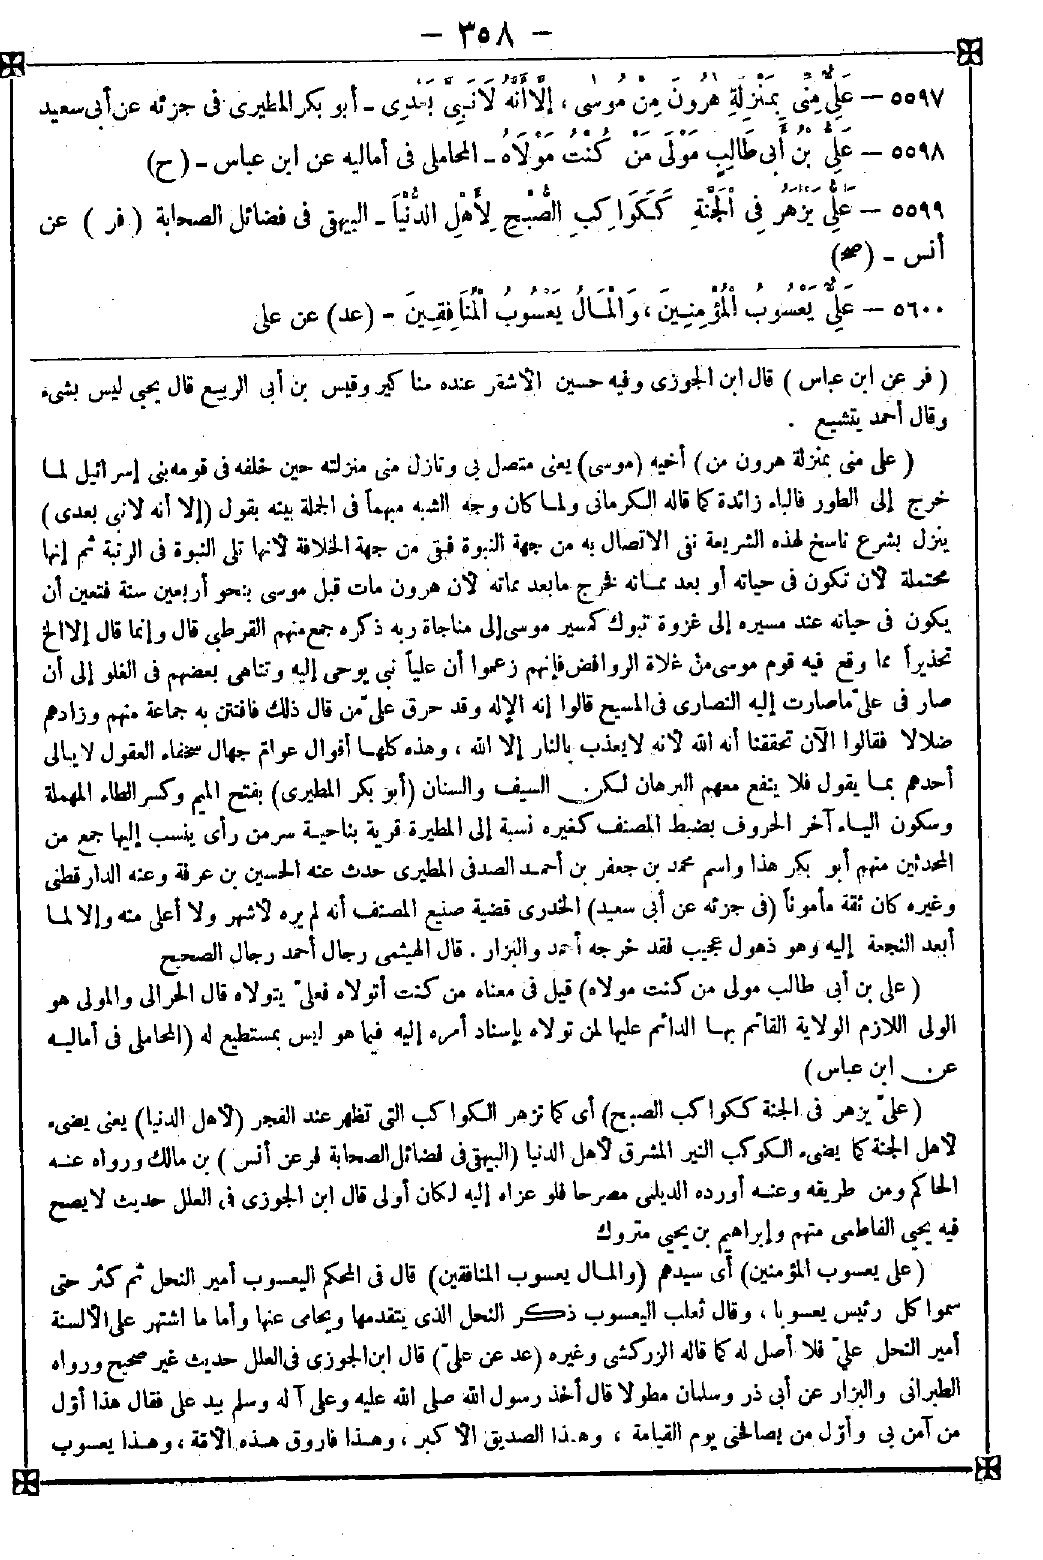 - ٣٥٨ -
٥٥٩٧ - عَلِيٌّ مِنِّي بِمَنْزِلَةِ هٰرُونَ مِنْ مُوسٰى ، إلَّا أَنَّهُ لَا نَبِيَّ بَعْدِى - أبو بكر المطيرى فى جزئه عن أبى سعيد
٥٥٩٨ - عَلِيُّ بْنُ أَبِى طَالِبٍ مَوْلَى مَنْ كُنْتُ مَوْلَاهُ - المحاملى فى أماليه عن ابن عباس - (ح)
٥٥٩٩ - عَلِيٌّ يَزْهَرُ فِى الْجَنَّةِ كَكَوَاكِبِ الصُّبْحِ لِأَهْلِ الدُّنْيَا - البيهقى فى فضائل الصحابة ( فر ) عن
أنس - (صح)
٥٦٠٠ - عَلِيٌّ يَعْسُوبُ الْمُؤْمِنِينَ ، وَالْمَالُ يَعْسُوبُ الْمُنَافِقِينَ - (عد) عن على
( فر عن ابن عباس ) قال ابن الجوزى وفيه حسين الأشقر عنده مناكير وقيس بن أبى الربيع قال يحيى ليس بشىء
وقال أحمد يتشيع .
( على منى بمنزلة هرون من ) أخيه (موسى) يعنى متصل بى ونازل منى منزلته حين خلفه فى قومه بنى إسرائيل لما
خرج إلى الطور فالباء زائدة كما قاله الكرمانى ولما كان وجه الشبه مبهماً فى الجملة بينه بقول (إلا أنه لا نبى بعدى)
ينزل بشرع ناسخ لهذه الشريعة نفى الاتصال به من جهة النبوة فبقى من جهة الخلافة لأنها تلى النبوة فى الرتبة ثم إنها
محتملة لأن تكون فى حياته أو بعد مماته فخرج ما بعد مماته لأن هرون مات قبل موسى بنحو أربعين سنة فتعين أن
يكون فى حياته عند مسيره إلى غزوة تبوك كمسير موسى إلى مناجاة ربه ذكره جمع منهم القرطبى قال وإنما قال إلا الخ
تحذيراً مما وقع فيه قوم موسى من غلاة الروافض فإنهم زعموا أن علياً نبى يوحى إليه وتناهى بعضهم فى الغلو إلى أن
صار فى علىّ ما صارت إليه النصارى فى المسيح قالوا إنه الإله وقد حرق علىّ من قال ذلك فافتتن به جماعة منهم وزادهم
ضلالا فقالوا الآن تحققنا أنه الله لأنه لا يعذب بالنار إلا الله ، وهذه كلها أقوال عوام جهال سخفاء العقول لا يبالى
أحدهم بما يقول فلا ينفع معهم البرهان لكن السيف والسنان (أبو بكر المطيرى) بفتح الميم وكسر الطاء المهملة
وسكون الياء آخر الحروف بضبط المصنف كغيره نسبة إلى المطيرة قرية بناحية سر من رأى ينسب إليها جمع من
المحدثين منهم أبو بكر هذا واسم محمد بن جعفر بن أحمد الصدفى المطيرى حدث عنه الحسين بن عرفة وعنه الدارقطنى
وغيره كان ثقة مأموناً (فى جزئه عن أبى سعيد) الخدرى قضية صنيع المصنف أنه لم يره لأشهر ولا أعلى منه وإلا لما
أبعد النجعة إليه وهو ذهول عجيب فقد خرجه أحمد والبزار . قال الهيثمى رجال أحمد رجال الصحيح
( على بن أبى طالب مولى من كنت مولاه) قيل فى معناه من كنت أتولاه فعلىّ يتولاه قال الحرالى والمولى هو
الولى اللازم الولاية القائم بها الدائم عليها لمن تولاه بإسناد أمره إليه فيما هو ليس بمستطيع له (المحاملى فى أماليه
عن ابن عباس)
(علىّ يزهر فى الجنة ككواكب الصبح) أى كما تزهر الكواكب التى تظهر عند الفجر (لأهل الدنيا) يعنى يضىء
لأهل الجنة كما يضىء الكوكب النير المشرق لأهل الدنيا (البيهقى فى فضائل الصحابة فر عن أنس ) بن مالك ورواه عنه
الحاكم ومن طريقه وعنه أورده الديلمى مصرحا فلو عزاه إليه لكان أولى قال ابن الجوزى فى العلل حديث لا يصح
فيه يحيى الفاطمى متهم وإبراهيم بن يحيى متروك
(على يعسوب المؤمنين) أى سيدهم (والمال يعسوب المنافقين) قال فى المحكم اليعسوب أمير النحل ثم كثر حتى
سموا كل رئيس يعسوبا ، وقال ثعلب اليعسوب ذكر النحل الذى يتقدمها ويحامى عنها وأما ما اشتهر على الألسنة
أمير النحل علىّ فلا أصل له كما قاله الزركشى وغيره (عد عن علىّ) قال ابن الجوزى فى العلل حديث غير صحيح ورواه
الطبرانى والبزار عن أبى ذر وسلمان مطولا قال أخذ رسول الله صلى الله عليه وعلى آله وسلم بيد على فقال هذا أوّل
من آمن بى وأوّل من يصافحنى يوم القيامة ، وهذا الصديق الأكبر ، وهذا فاروق هذه الأمّة ، وهذا يعسوب